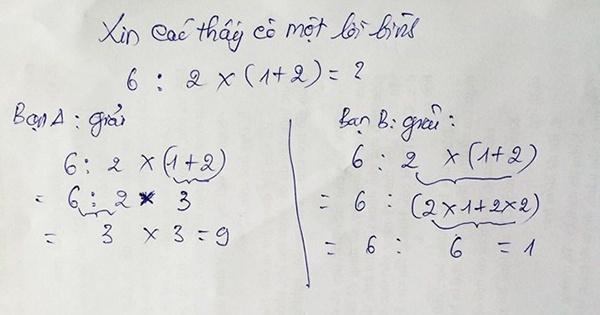 Xin các thầy cô một lời bình
6 : 2 x (1+2) = ?
Bạn A : giải
6 : 2 x (1+2)
= 6 : 2 x 3
= 3 x 3 = 9
Bạn B : giải :
6 : 2 x (1+2)
= 6 : (2x1+2x2)
= 6 : 6 = 1